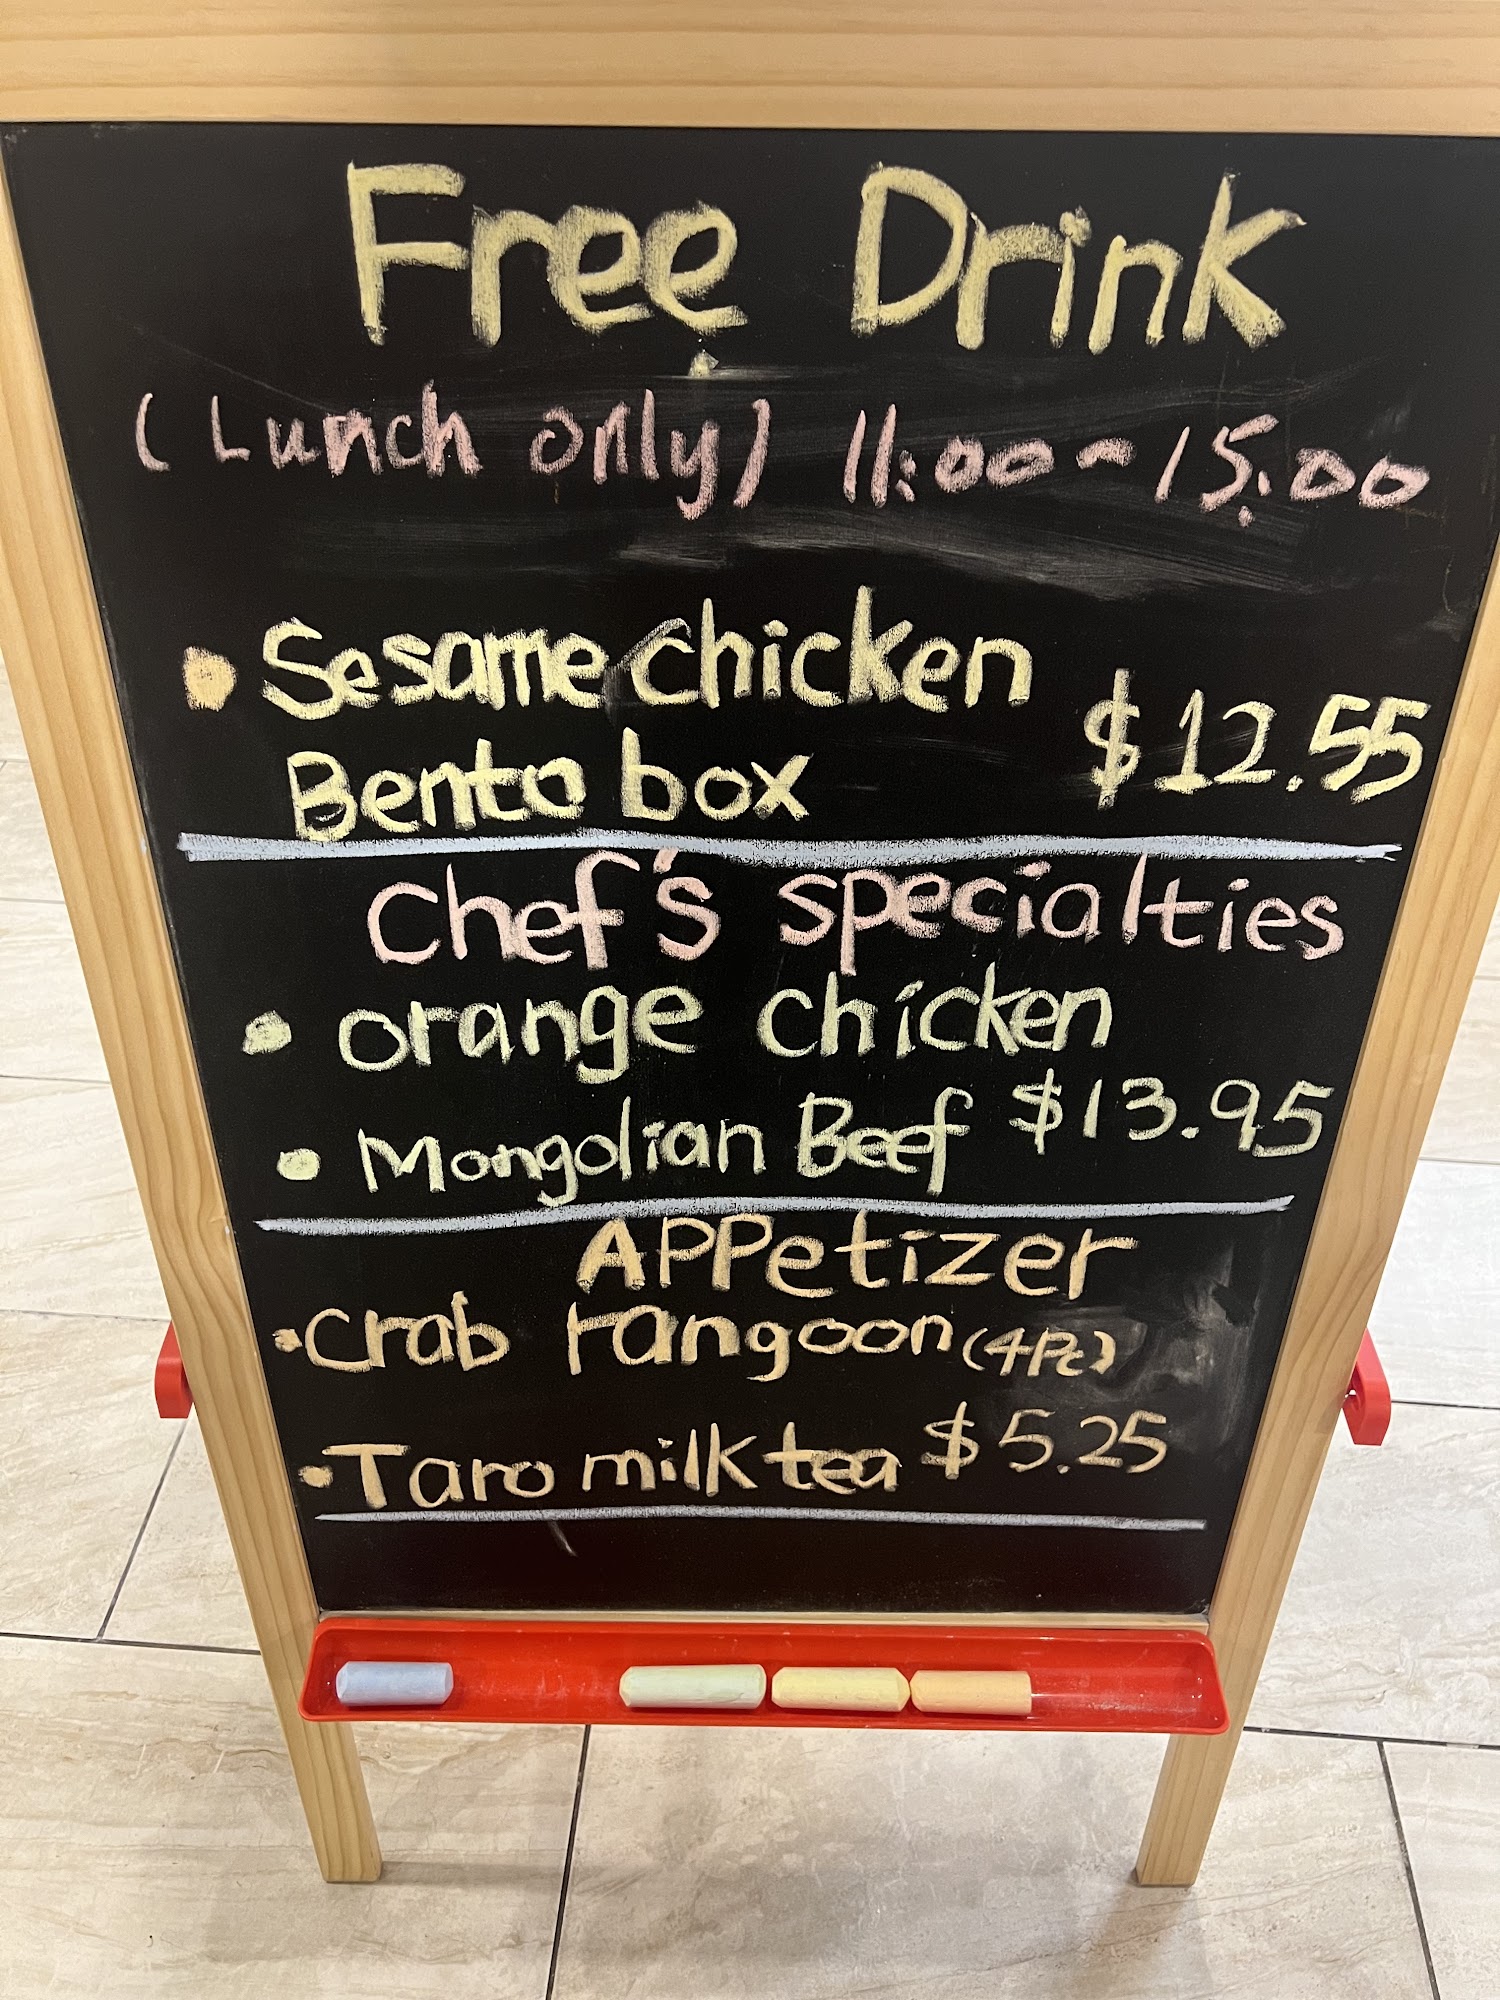 Free Drink
(Lunch only) 11:00-15:00
• Sesame chicken
Bento box $12.55
Chef's specialties
• orange chicken
• Mongolian Beef $13.95
APPetizer
• Crab rangoon (4Pc)
• Taro milk tea $5.25